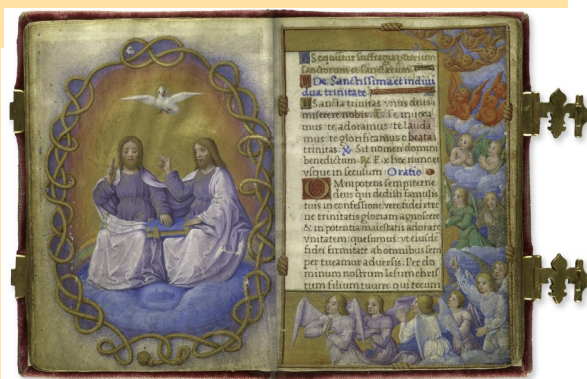 Sequuntur suffragia plurimorum
sanctorum et sanctarum.
De Sanctissima et indiui
dua trinitate
Sancta trinitas vnus deus
miserere nobis. Te inuoca
mus: te adoramus: te lauda
mus: te glorificamus o beata
trinitas. Sit nomen domini
benedictum. Ex hoc nunc et
vsque in seculum Oratio
Omnipotens sempiterne
deus qui dedisti famulis
tuis in confessione vere fidei eter
ne trinitatis gloriam agnoscere
& in potentia maiestatis adorare
vnitatem quesumus vt eiusdē
fidei firmitate ab omnibus sem
per tueamur aduersis. Per do
minum nostrum Iesum chris
tum filium tuum: qui tecum